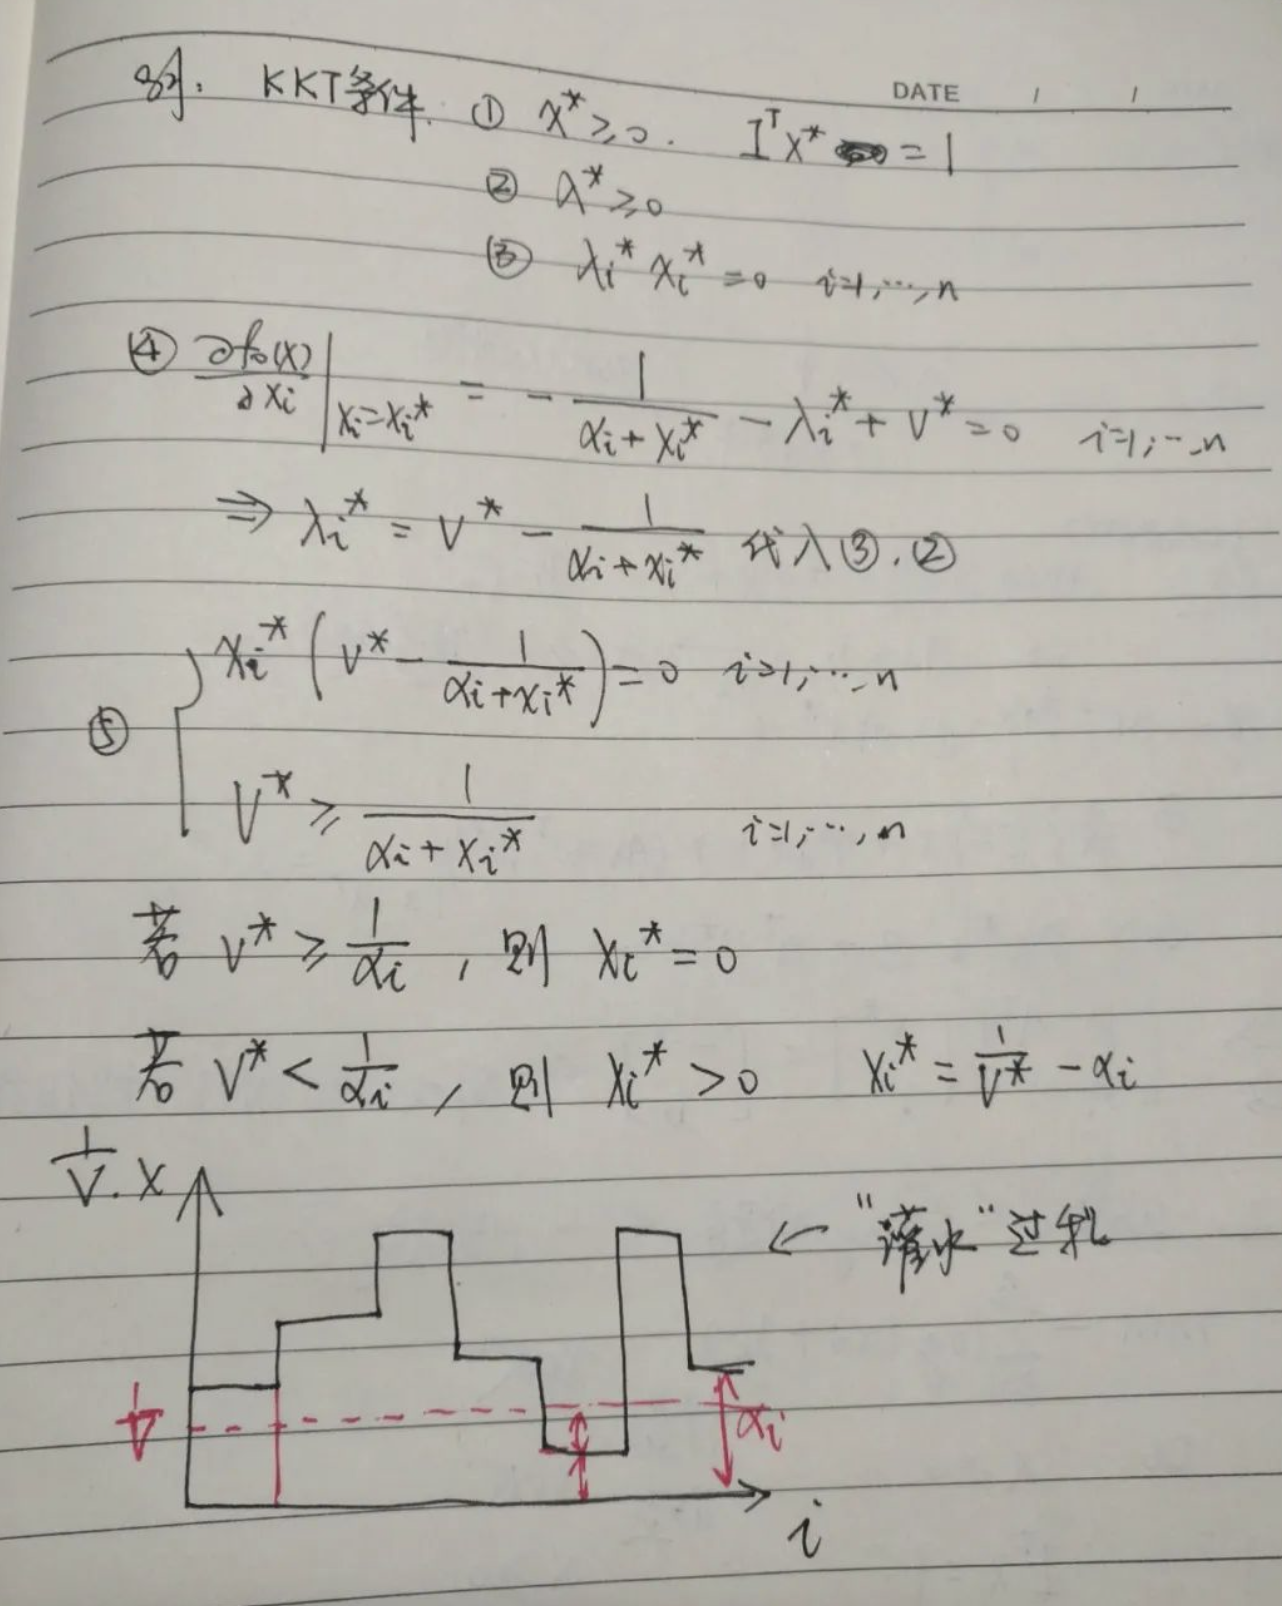 DATE / /
KKT条件. ① x* ≥ 0. 1ᵀx* = 1
② λ* ≥ 0
③ λi* xi* = 0 i=1,…,n
④ ∂f₀(x)/∂xi |xi=xi* = - 1/(αi + xi*) - λi* + v* = 0 i=1,…,n
⇒ λi* = v* - 1/(αi + xi*) 代入③.②
⑤ { xi* (v* - 1/(αi + xi*)) = 0 i=1,…,n
v* ≥ 1/(αi + xi*) i=1,…,n
若 v* ≥ 1/αi , 则 xi* = 0
若 v* < 1/αi , 则 xi* > 0 xi* = 1/v* - αi
1/v . x
← "灌水"过程
1/v
αi
i